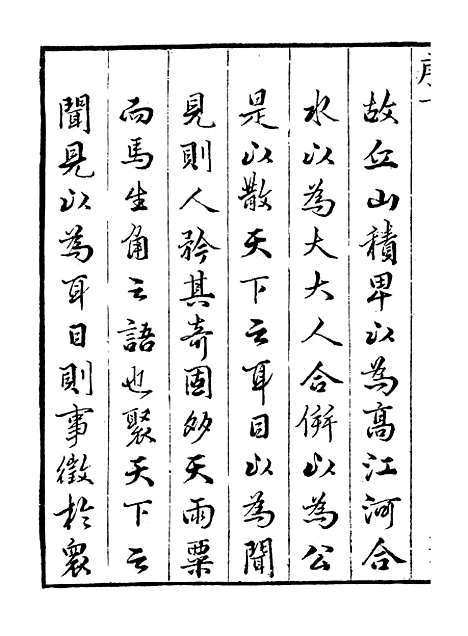 故丘山積卑以為高江河合
水以為大大人合併以為公
是以散天下之耳目以為聞
見則人矜其奇固多天雨粟
而馬生角之語也聚天下之
聞見以為耳目則事徵於衆